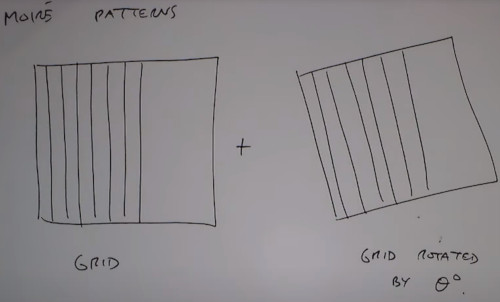 MOIRÉ PATTERNS
+
GRID
GRID ROTATED
BY θ°.